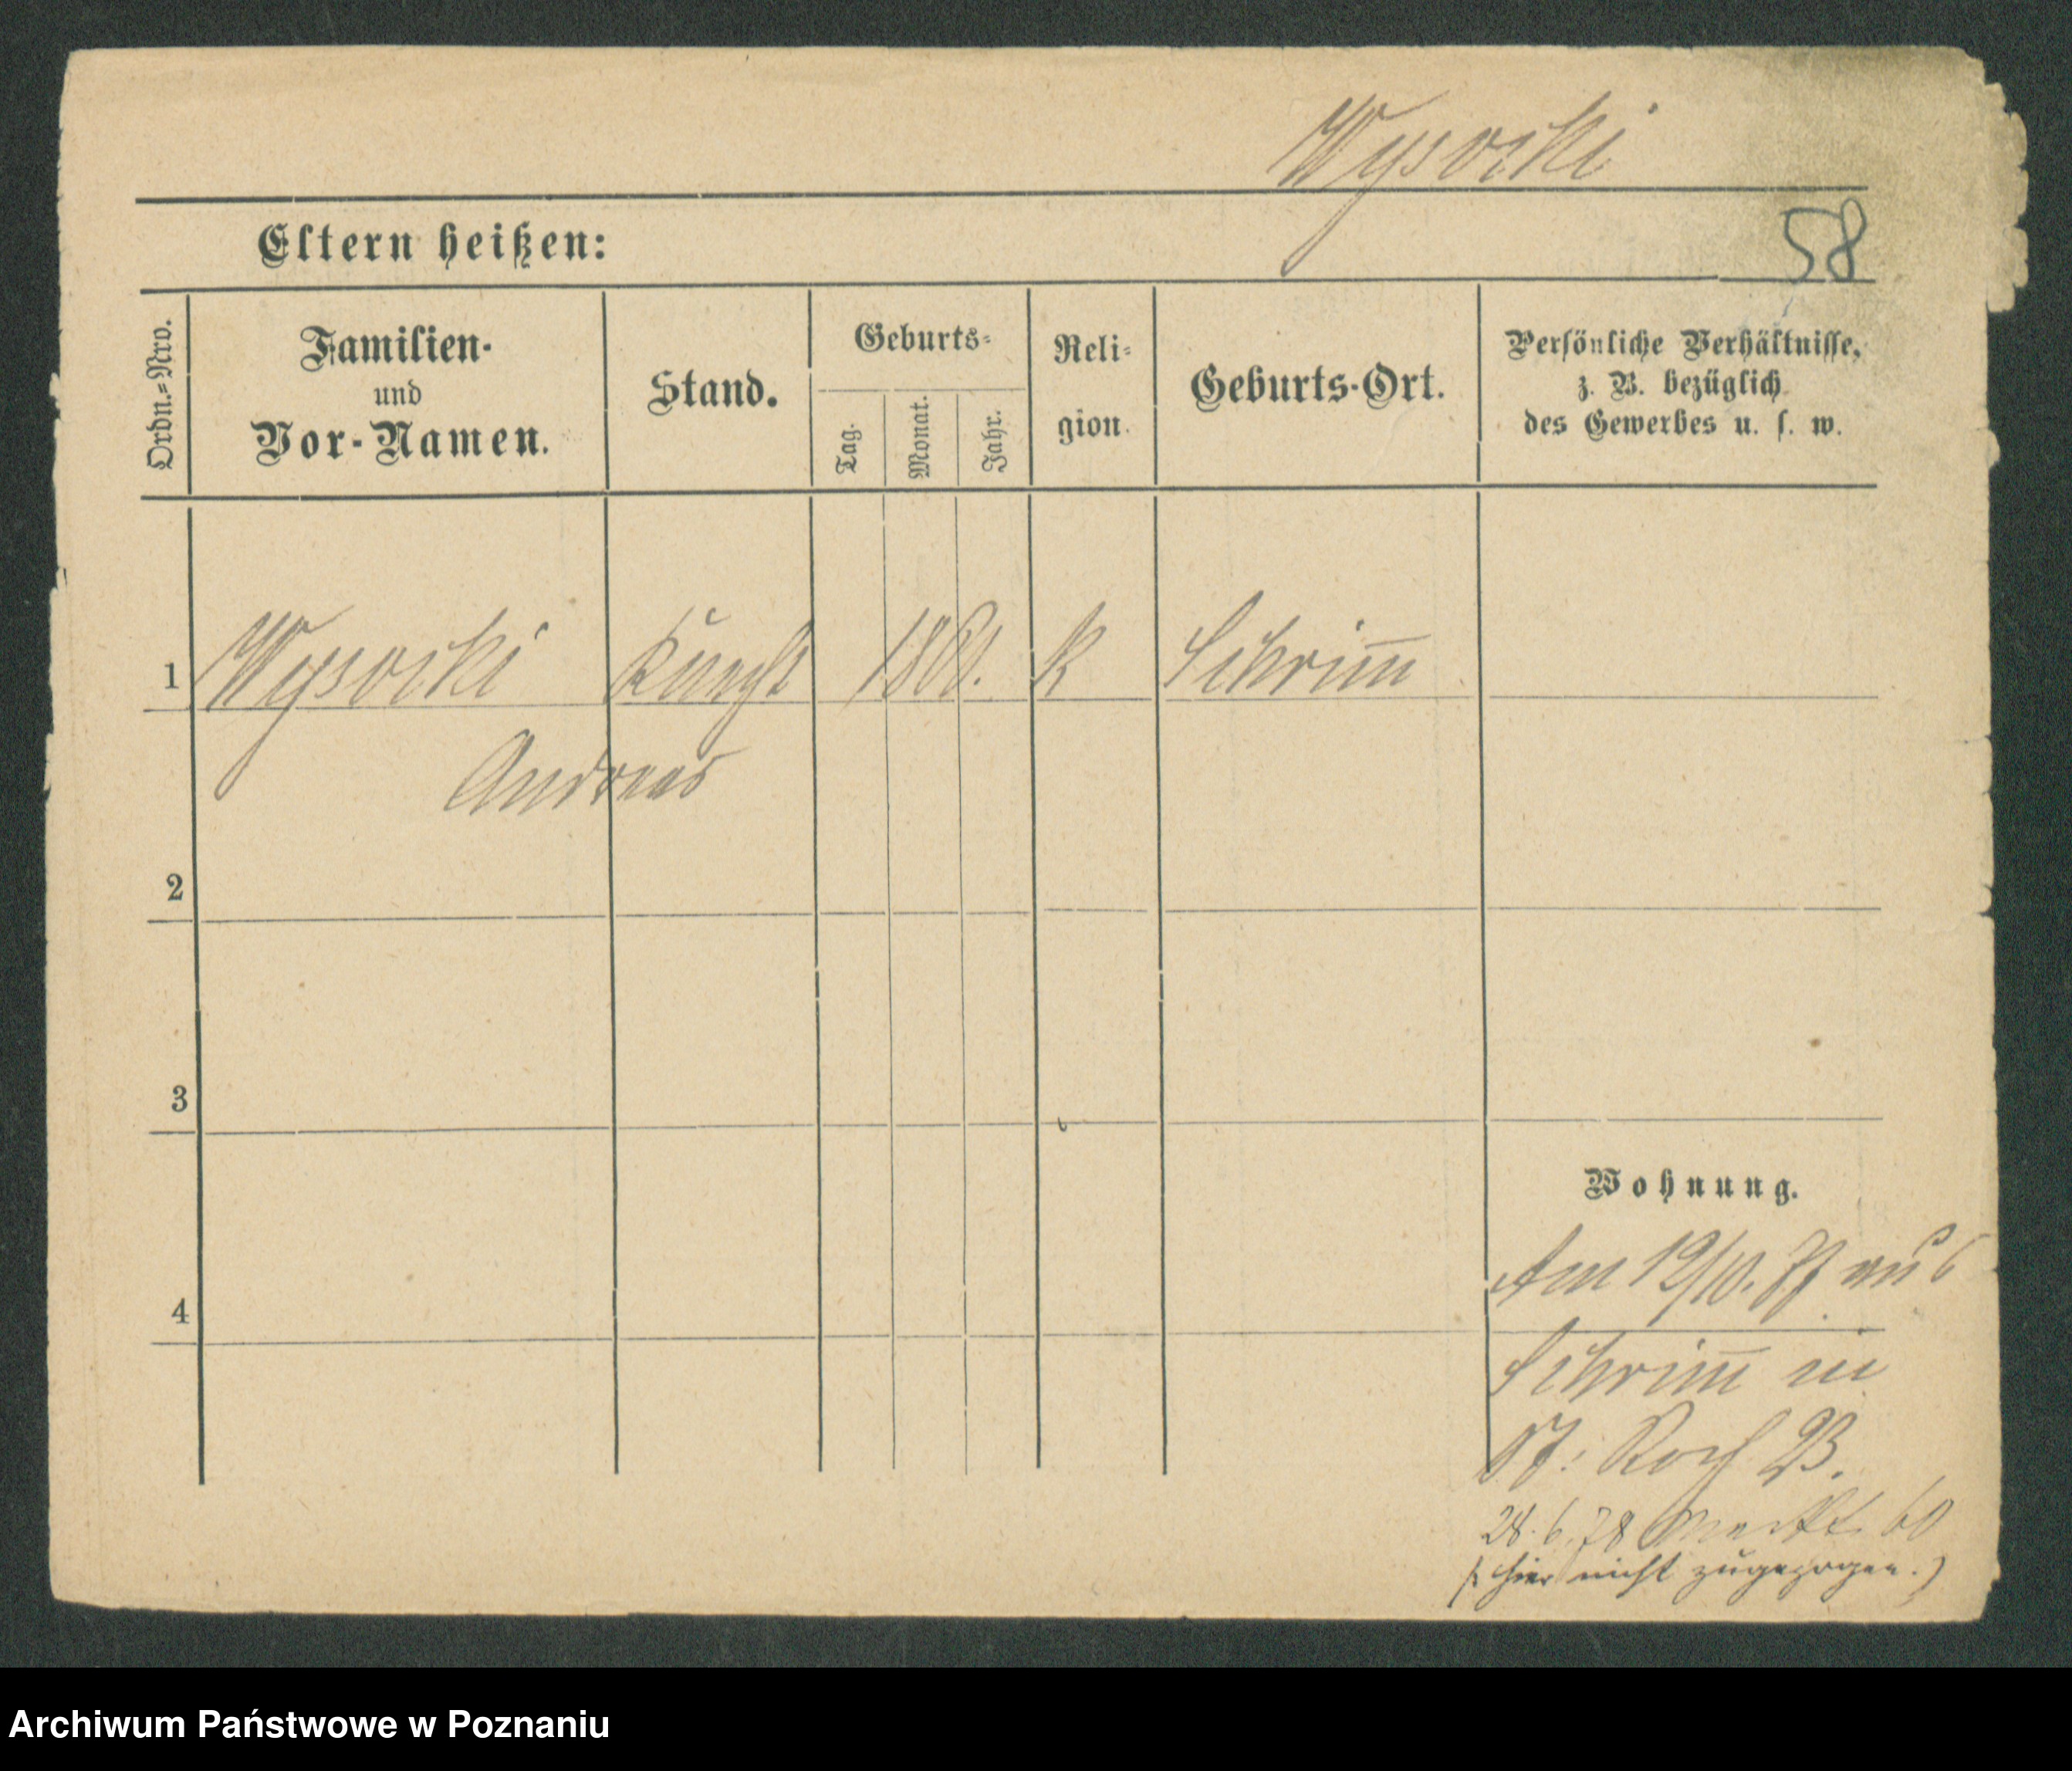 Wysocki
58
Eltern heißen:
Ordn.=Nro.
Familien-
und
Vor-Namen.
Stand.
Geburts-
Tag.
Monat.
Jahr.
Reli-
gion.
Geburts-Ort.
Persönliche Verhältnisse,
z. B. bezüglich
des Gewerbes u. s. w.
1
Wysocki Knecht K Schrim̄
Andreas
2
3
4
Wohnung.
Am 19/10. 77 aus
Schrim̄ in
St: Roch B.
28. 6. 78 60
(: hier nicht zugezogen. )
Archiwum Państwowe w Poznaniu